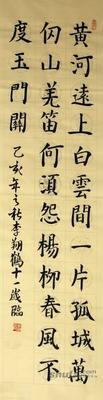 黃河遠上白雲間一片孤城萬
仞山羌笛何須怨楊柳春風不
度玉門關
乙亥年之秋李翔鶴十一歲臨